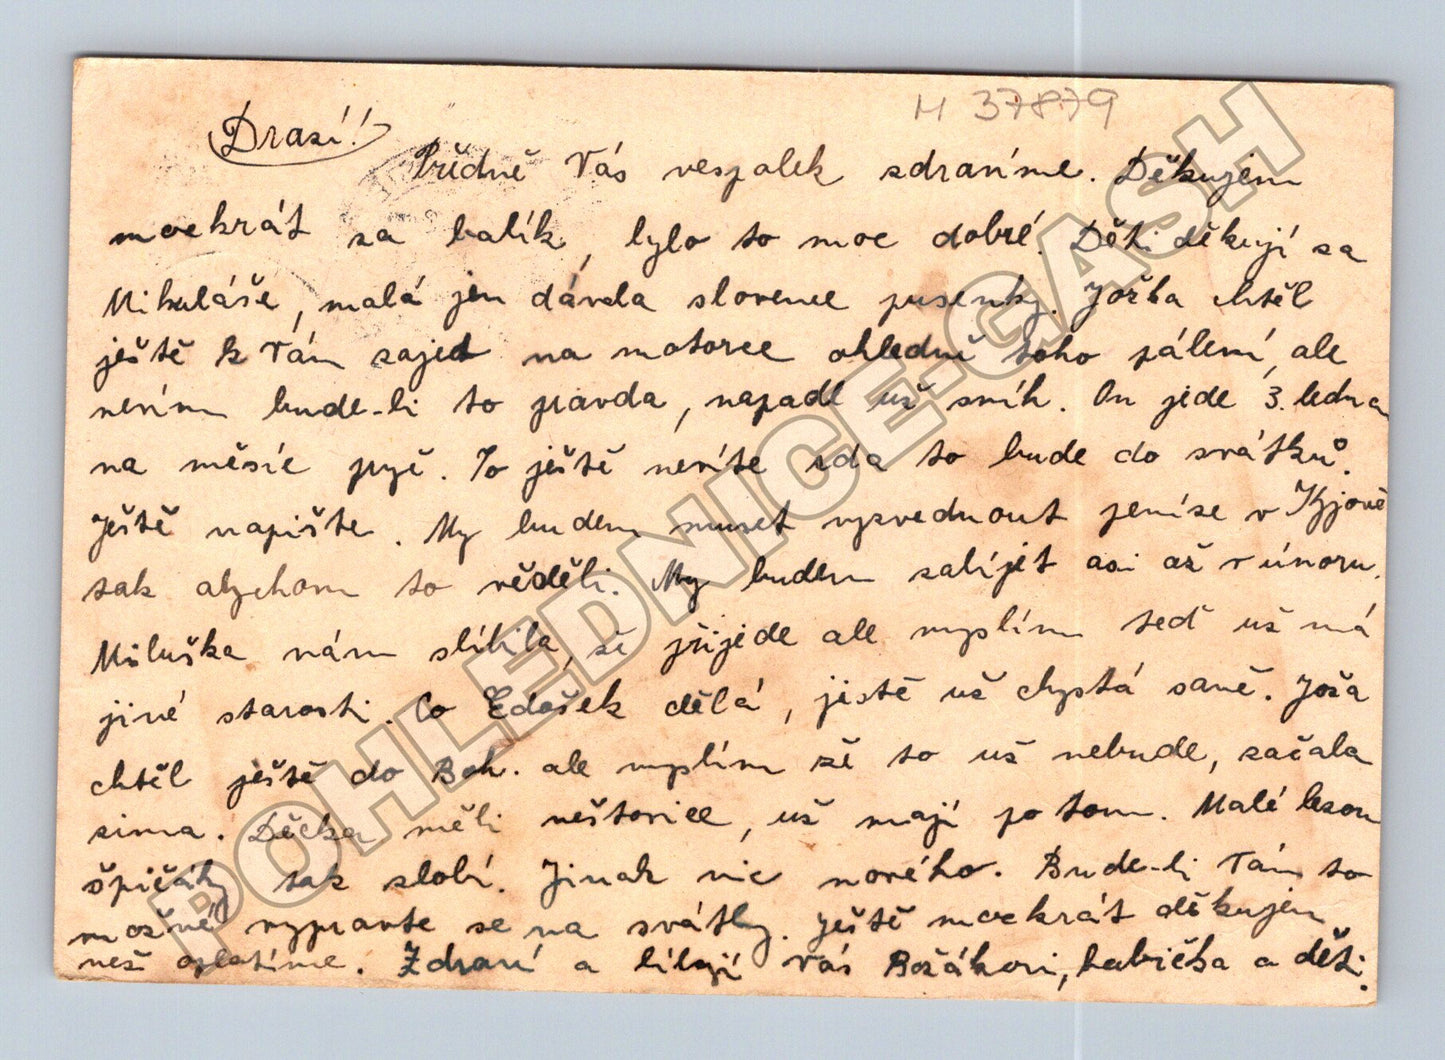 H 37879
Drazí!!
Předně Vás vespolek zdravíme. Děkujem
mockrát za balík, bylo to moc dobré. Děti děkují za
Mikuláše, malá jen dávala slovence pusenky. Jožka chtěl
ještě k Vám zajet na motorce ohledně toho pálení, ale
nevím bude-li to pravda, napadl už sníh. On jede 3. ledna
na měsíc pryč. To ještě nevíte zda to bude do svátků.
Ještě napište. My budem muset vyzvednout peníze v Kyjově
tak abychom to věděli. My budem zabíjet asi až v únoru.
Miluška nám slíbila, že přijede ale myslím teď už má
jiné starosti. Co Edošek dělá, jistě už chystá saně. Joža
chtěl ještě do Boh. ale myslím že to už nebude, začala
zima. Děcka měli neštovice, už mají po tom. Malé lezou
špičáky tak zlobí. Jinak nic nového. Bude-li Vám to
možné vypravte se na svátky. Ještě mockrát děkujem
než oplatíme. Zdraví a líbají Vás Božákovi, babička a děti.
POHLEDNICE-GASH